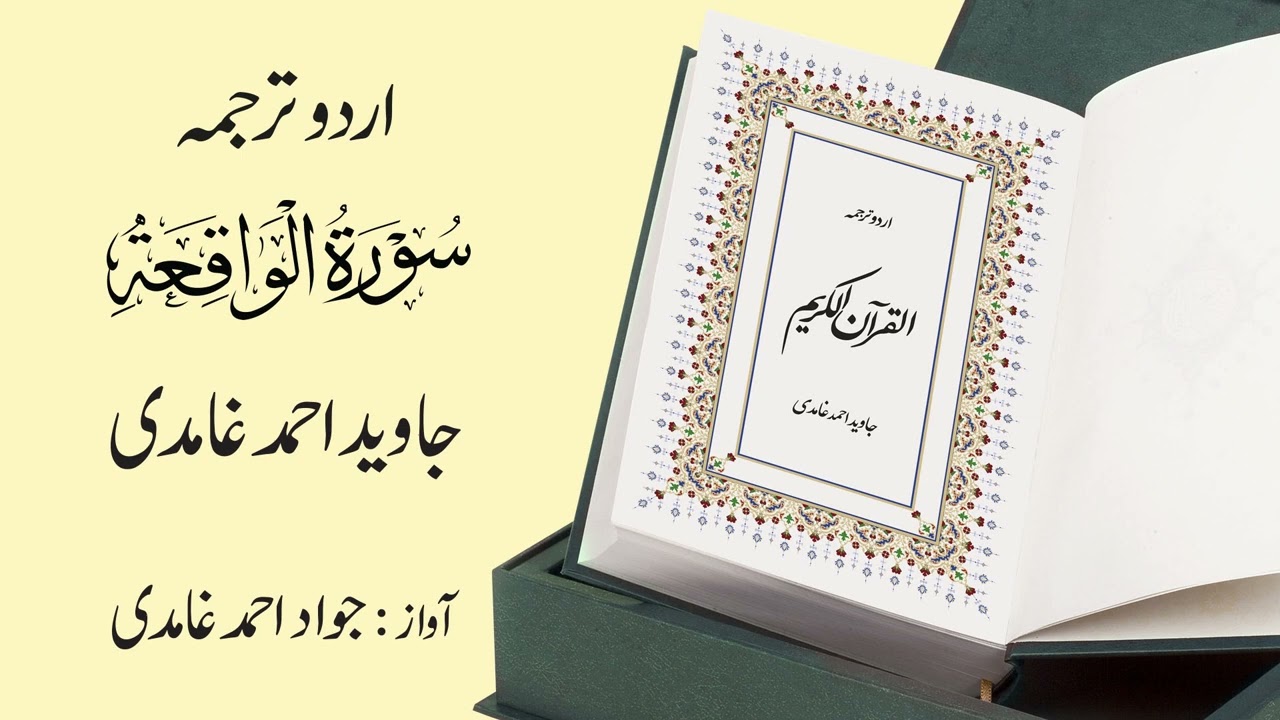 اردو ترجمہ
سُوْرَةُ الْوَاقِعَةِ
جاوید احمد غامدی
آواز : جواد احمد غامدی
اردو ترجمہ
القرآن الکریم
جاوید احمد غامدی